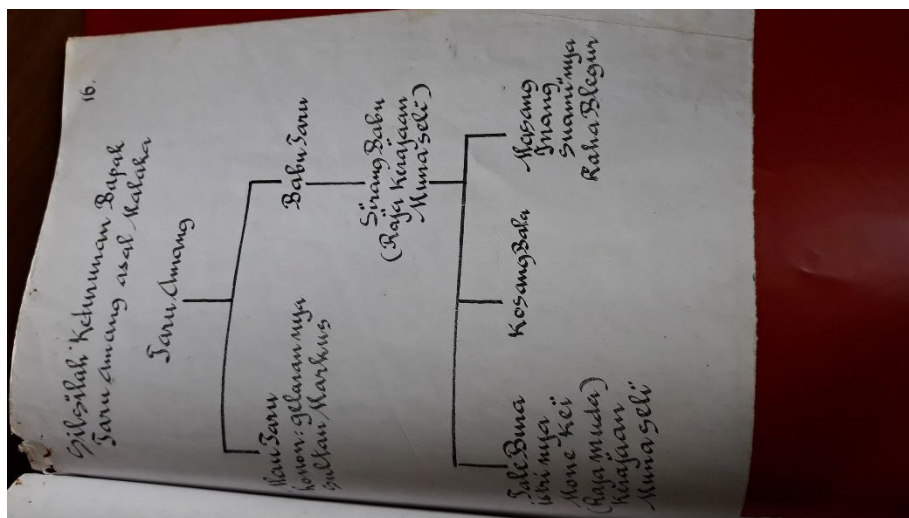 16.
Silsilah Keturunan Bapak
Taru Amang asal Malaka
Taru Amang
Mau Taru
konon: gelarannya
Sultan Markus
Babu Taru
Sirang Babu
(Raja Kerajaan
Muna Seli)
Tale Bura
istrinya
Mone Kei
(Raja muda)
Kerajaan
Muna Seli
Kosang Bala
Masang
Inang
Suaminya
Raha Blegur